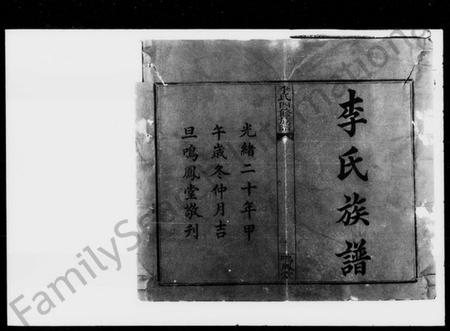 李氏族譜
李氏四修族譜
光緒二十年甲
午歲冬仲月吉
旦鳴鳳堂敬刊
FamilySearch International